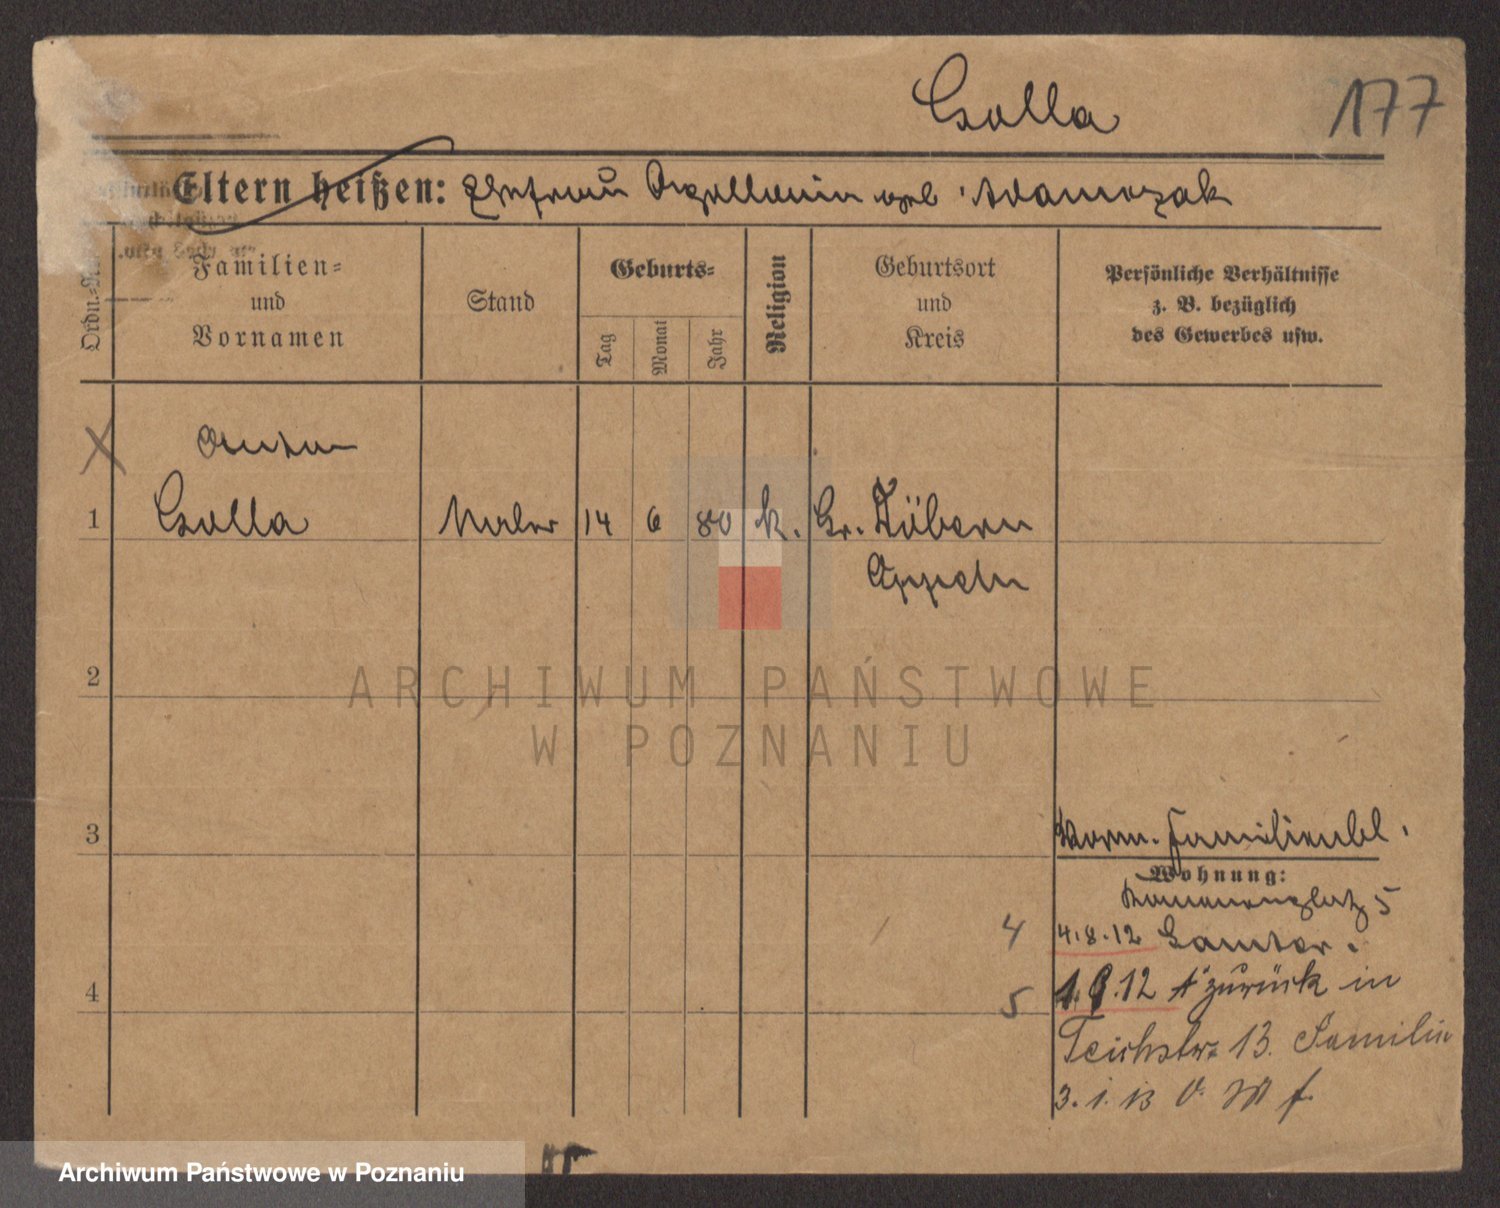 Golla
177
Eltern heißen: Ehefrau Apollonia geb. Adamczak
Ordn.-Nr.
Familien-
und
Vornamen
Stand
Geburts-
Tag
Monat
Jahr
Religion
Geburtsort
und
Kreis
Persönliche Verhältnisse
z. B. bezüglich
des Gewerbes usw.
Anton
1 Golla Maler 14 6 80 k. Gr. Döbern
Oppeln
2
3
Familienbl.
Wohnung:
5
4 4.8.12 Samter.
4
5 12 zurück in
Teichstr 13. Familie
3. 1. 13
ARCHIWUM PAŃSTWOWE
W POZNANIU
Archiwum Państwowe w Poznaniu